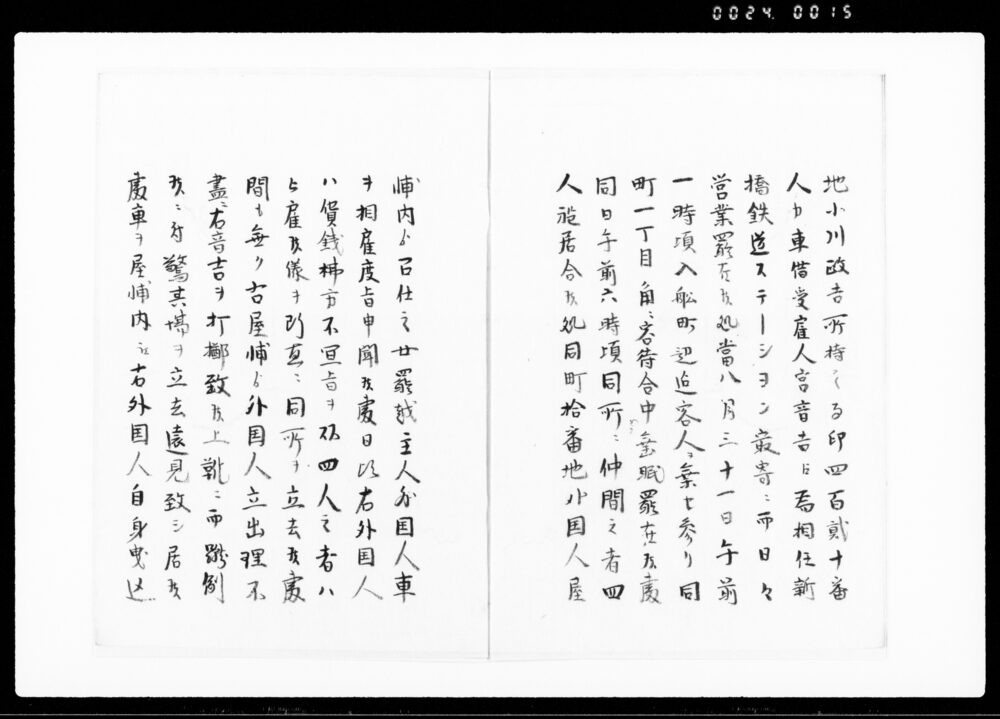 0024 0015
地小川政吉所持之る印四百貮十番
人力車借受雇人宮音吉ニ為相任新
橋鉄道ステーシヨン最寄ニ而日々
営業罷在候処當八月三十一日午前
一時頃入舩町辺迄客人ヲ乗せ参り同
町一丁目角ニ客待合中睡眠罷在候處
同日午前六時頃同所ニ仲間之者四
人罷居合候処同町拾番地外国人屋
舗内ゟ召仕之者罷越主人外国人車
ヲ相雇度旨申聞候處日比右外国人
ハ賃銭拂方不宜旨ヲ以四人之者ハ
被雇候儀ヲ断直ニ同所ヲ立去候處
間も無り右屋舗ゟ外国人立出理不
盡ニ右音吉ヲ打擲致候上靴ニ而蹴
候ニ付驚其場ヲ立去遠見致シ居候
處車ヲ屋舗内江右外国人自身曳込